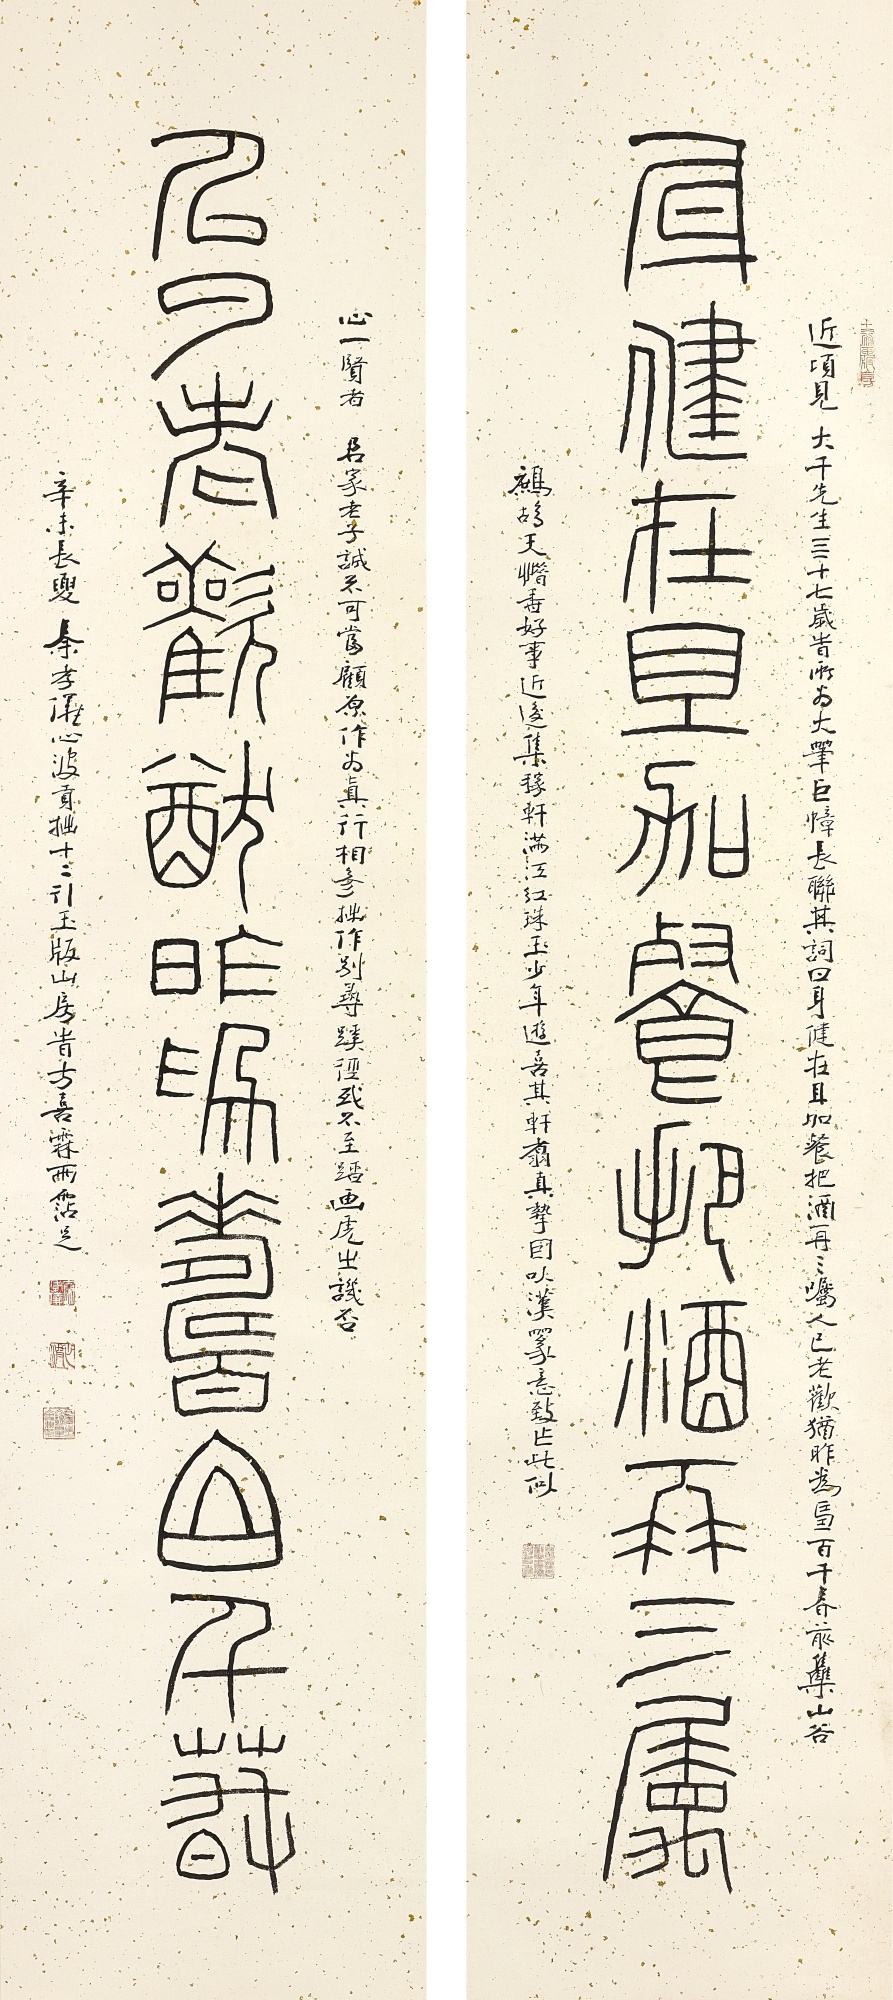 身健在且加餐把酒再三屬
近頃見 大千先生三十七歲旹所為大筆巨幛長聯其詞曰身健在且加餐把酒再三囑人已老歡猶昨為壽百千春前集山谷
鷓鴣天惜香好事近後集稼軒滿江紅珠玉少年遊喜其軒翥真摯因以漢篆意致作此似
人已老歡猶昨為壽百千春
心一賢者 名家老子誠不可當顧原作為真行相參拙作別尋蹊徑或不至蹈画虎之譏否
辛未長夏 秦孝儀心波貢拙十二引玉版山房旹方喜霖雨霑足